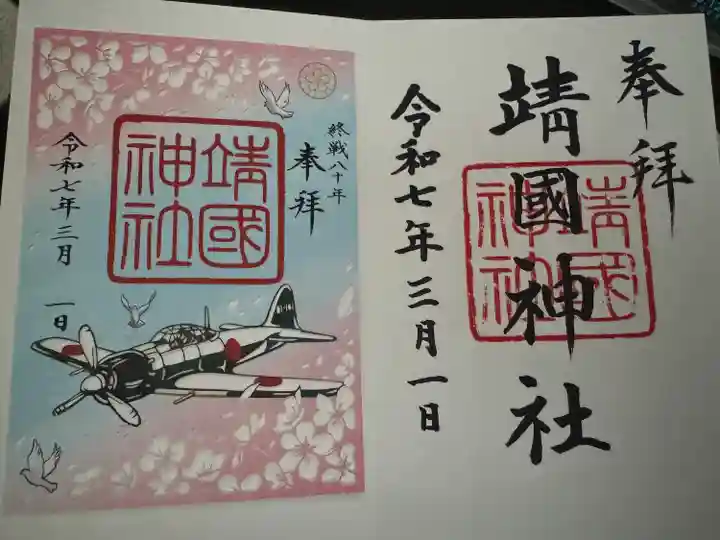 奉拝
靖國神社
靖國神社
令和七年三月一日
終戦八十年
奉拝
靖國神社
令和七年三月一日